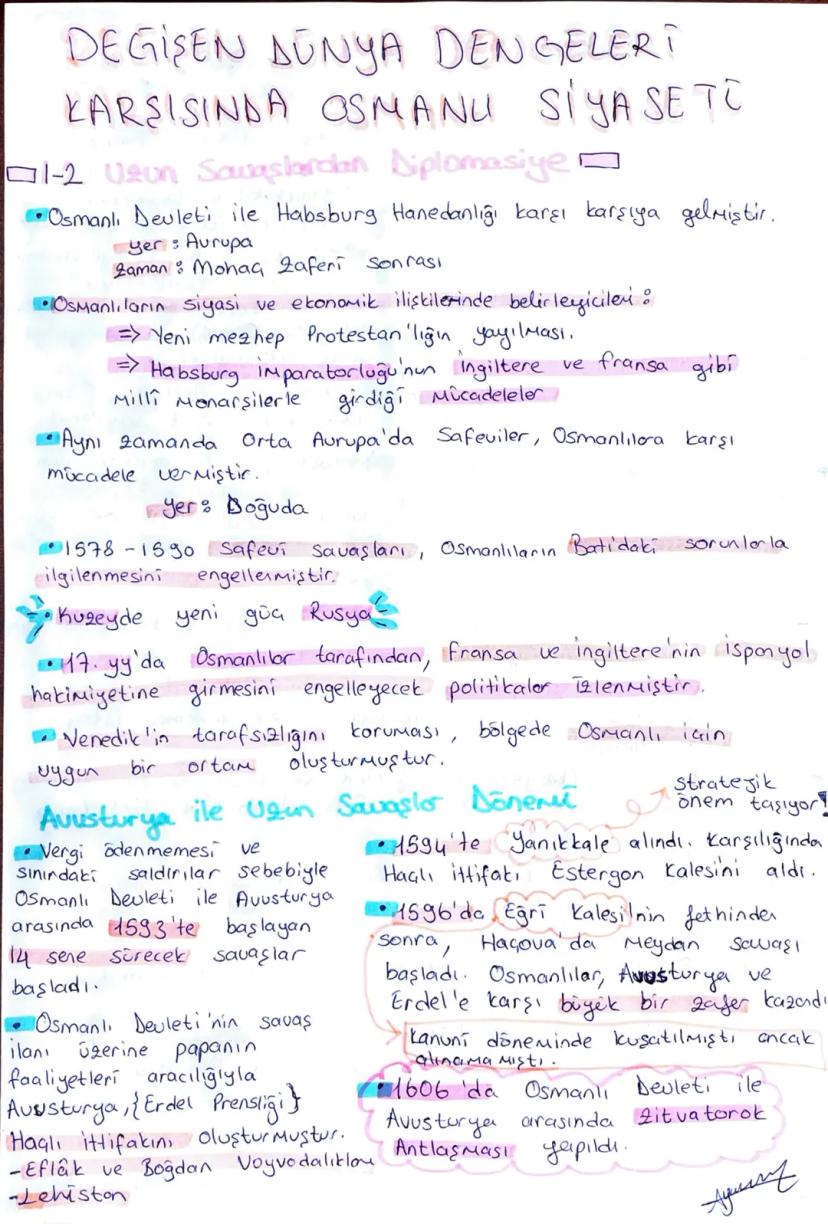 DEĞİŞEN DÜNYA DENGELERİ
KARŞISINDA OSMANLI SİYASETİ
1-2 Uzun Savaşlardan Diplomasiye
• Osmanlı Devleti ile Habsburg Hanedanlığı karşı karşıya gelmiştir.
yer : Avrupa
zaman : Mohaç Zaferi sonrası
• Osmanlıların siyasi ve ekonomik ilişkilerinde belirleyicileri :
⇒ Yeni mezhep Protestan'lığın yayılması.
⇒ Habsburg İmparatorluğu'nun İngiltere ve fransa gibi
Millî Monarşilerle girdiği Mücadeleler
• Aynı zamanda Orta Avrupa'da Safeviler, Osmanlılara karşı
mücadele vermiştir.
Yer : Doğuda
• 1578 - 1590 Safevi savaşları, Osmanlıların Batı'daki sorunlarla
ilgilenmesini engellenmiştir.
• Kuzeyde yeni güç Rusya
• 17. yy'da Osmanlılar tarafından, Fransa ve İngiltere'nin ispanyol
hakimiyetine girmesini engelleyecek politikalar izlenmiştir.
• Venedik'in tarafsızlığını koruması, bölgede Osmanlı için
uygun bir ortam oluşturmuştur.
Avusturya ile Uzun Savaşlar Dönemi
stratejik
önem taşıyor!
• Vergi ödenmemesi ve
sınırdaki saldırılar sebebiyle
Osmanlı Devleti ile Avusturya
arasında 1593'te başlayan
14 sene sürecek savaşlar
başladı.
• Osmanlı Devleti'nin savaş
ilanı üzerine papanın
faaliyetleri aracılığıyla
Avusturya, {Erdel Prensliği}
Haçlı ittifakını oluşturmuştur.
- Eflâk ve Boğdan Voyvodalıkları
- Lehistan
• 1594'te Yanıkkale alındı. Karşılığında
Haçlı ittifakı Estergon Kalesini aldı.
• 1596'da Eğri Kalesi'nin fethinden
sonra, Haçova'da Meydan savaşı
başladı. Osmanlılar, Avusturya ve
Erdel'e karşı büyük bir zafer kazandı
Kanuni döneminde kuşatılmıştı ancak
alınamamıştı.
• 1606'da Osmanlı Devleti ile
Avusturya arasında Zitvatorok
Antlaşması yapıldı.